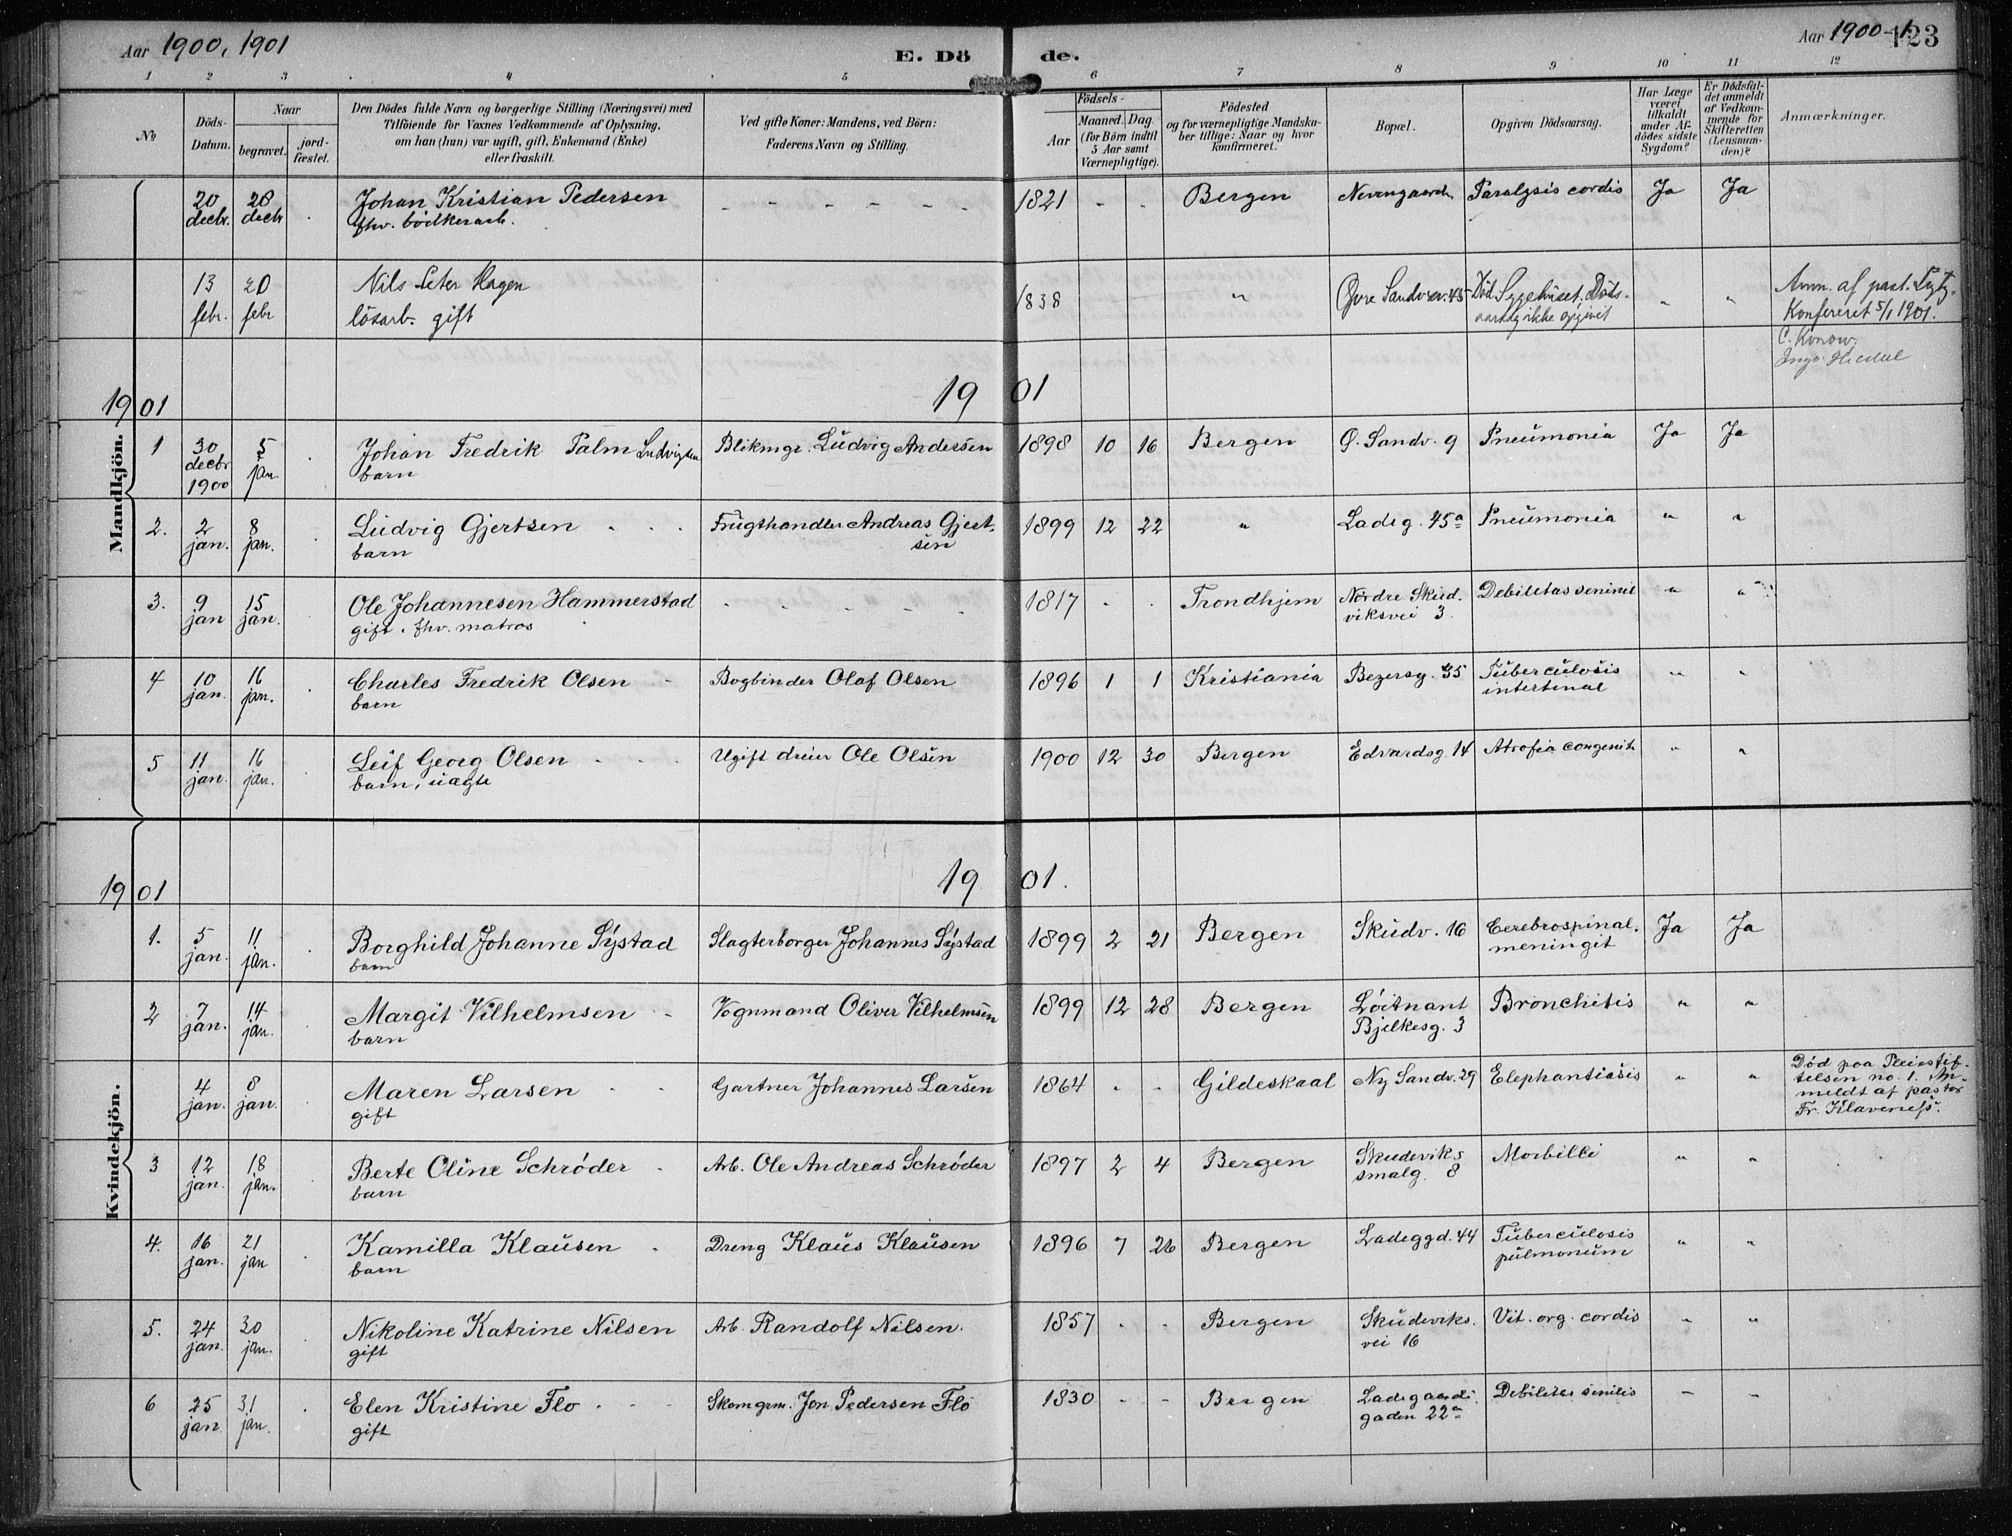 Aar 1900, 1901
E. Dö
de.
Aar 1900-1.
123
1 2 3 4 5 6 7 8 9 10 11 12
No
Döds-
Datum.
Naar
begravet.
jord-
fæstet.
Den Dödes fulde Navn og borgerlige Stilling (Næringsvei) med
Tilföiende for Voxnes Vedkommende af Oplysning,
om han (hun) var ugift, gift, Enkemand (Enke)
eller fraskilt.
Ved gifte Koner: Mandens, ved Börn:
Faderens Navn og Stilling.
Födsels-
Aar
Maaned. Dag
(for Börn indtil
5 Aar samt
Værnepligtige).
Födested
og for værnepligtige Mandska-
ber tillige: Naar og hvor
konfirmeret.
Bopæl.
Opgiven Dödsaarsag.
Har Læge
været
tilkaldt
under Af-
dödes sidste
Sygdom?
Er Dödsfal-
det anmeldt
af Vedkom-
mende for
Skifteretten
(Lensman-
den)?
Anmærkninger.
Mandkjön.
20 decbr. 28 decbr Johan Kristian Pedersen - - - - - - 1821 - - Bergen Paralysis cordis Ja Ja
fhv. bödkerarb.
13 febr. 20 febr Nils Peter Hagen 1838 " Øvre Sandv.v. 45 Död Sygehuset. Döds-
lösarb. gift
aarsag ikke opgivet " "
Anm. af past.
Konfereret 5/1 1901.
C. Konow.
1901 1901
1 30 decbr 1900 5 jan. Johan Fredrik Palm Ludvigsen Blikmgr. Ludvig Andersen 1898 10 16 Bergen Ø. Sandv. 9 Pneumonia Ja Ja
barn
2. 2 jan. 8 jan. Ludvig Gjertsen Frugthandler Andreas Gjert-
sen 1899 12 22 " Ladeg. 45a Pneumonia " "
barn
3. 9 jan 15 jan. Ole Johannesen Hammerstad - - - - - 1817 - - Trondhjem Nordre Skud.
viksvei 3. Debilitas senimil " "
gift. fhv. matros
4 10 jan. 16 jan. Charles Fredrik Olsen Bogbinder Olaf Olsen 1896 1 1 Kristiania 35 Tuberculosis
intestinal " "
barn
5 11 jan. 16 jan. Leif Georg Olsen Ugift dreier Ole Olsen 1900 12 30 Bergen Edvardsg. 14 Atrofia congenit. " "
barn, uægte
Kvindekjön.
1901 1901.
1. 5 jan. 11 jan. Borghild Johanne Systad Slagterborger Johannes Systad 1899 2 21 Bergen Skudv. 16 Cerebrospinal.
meningit Ja Ja
barn
2 7 jan. 14 jan. Margit Vilhelmsen Vognmand Oliver Vilhelmsen 1899 12 28 Bergen Løitnant
Bjelkesg. 3 Bronchitis " "
barn
4 jan. 8 jan. Maren Larsen Gartner Johannes Larsen 1864 - - Gildeskaal Ny Sandv. 29 Elephantiasis " "
gift
Død paa Pleiestif-
telsen no. 1. An-
meldt af pastor
Fr. Klaveness.
3 12 jan. 18 jan. Berte Oline Schrøder Arb. Ole Andreas Schrøder 1897 2 4 Bergen Skudeviks
smalg. 8 Morbilli " "
barn
4. 16 jan. 21 jan Kamilla Klausen Dreng Klaus Klausen 1896 7 26 Bergen Ladeggd. 44 Tuberculosis
pulmonum " "
barn
5. 24 jan. 30 jan. Nikoline Katrine Nilsen Arb. Randolf Nilsen. 1857 - - Bergen Skudeviks.
vei 16 Vit. org. cordis " "
gift
6 25 jan. 31 jan. Elen Kristine Flo Skomgrm. Jon Pedersen Flo 1830 - - Bergen Ladegaards.
gaden 22a Debilitas senilis - -
gift